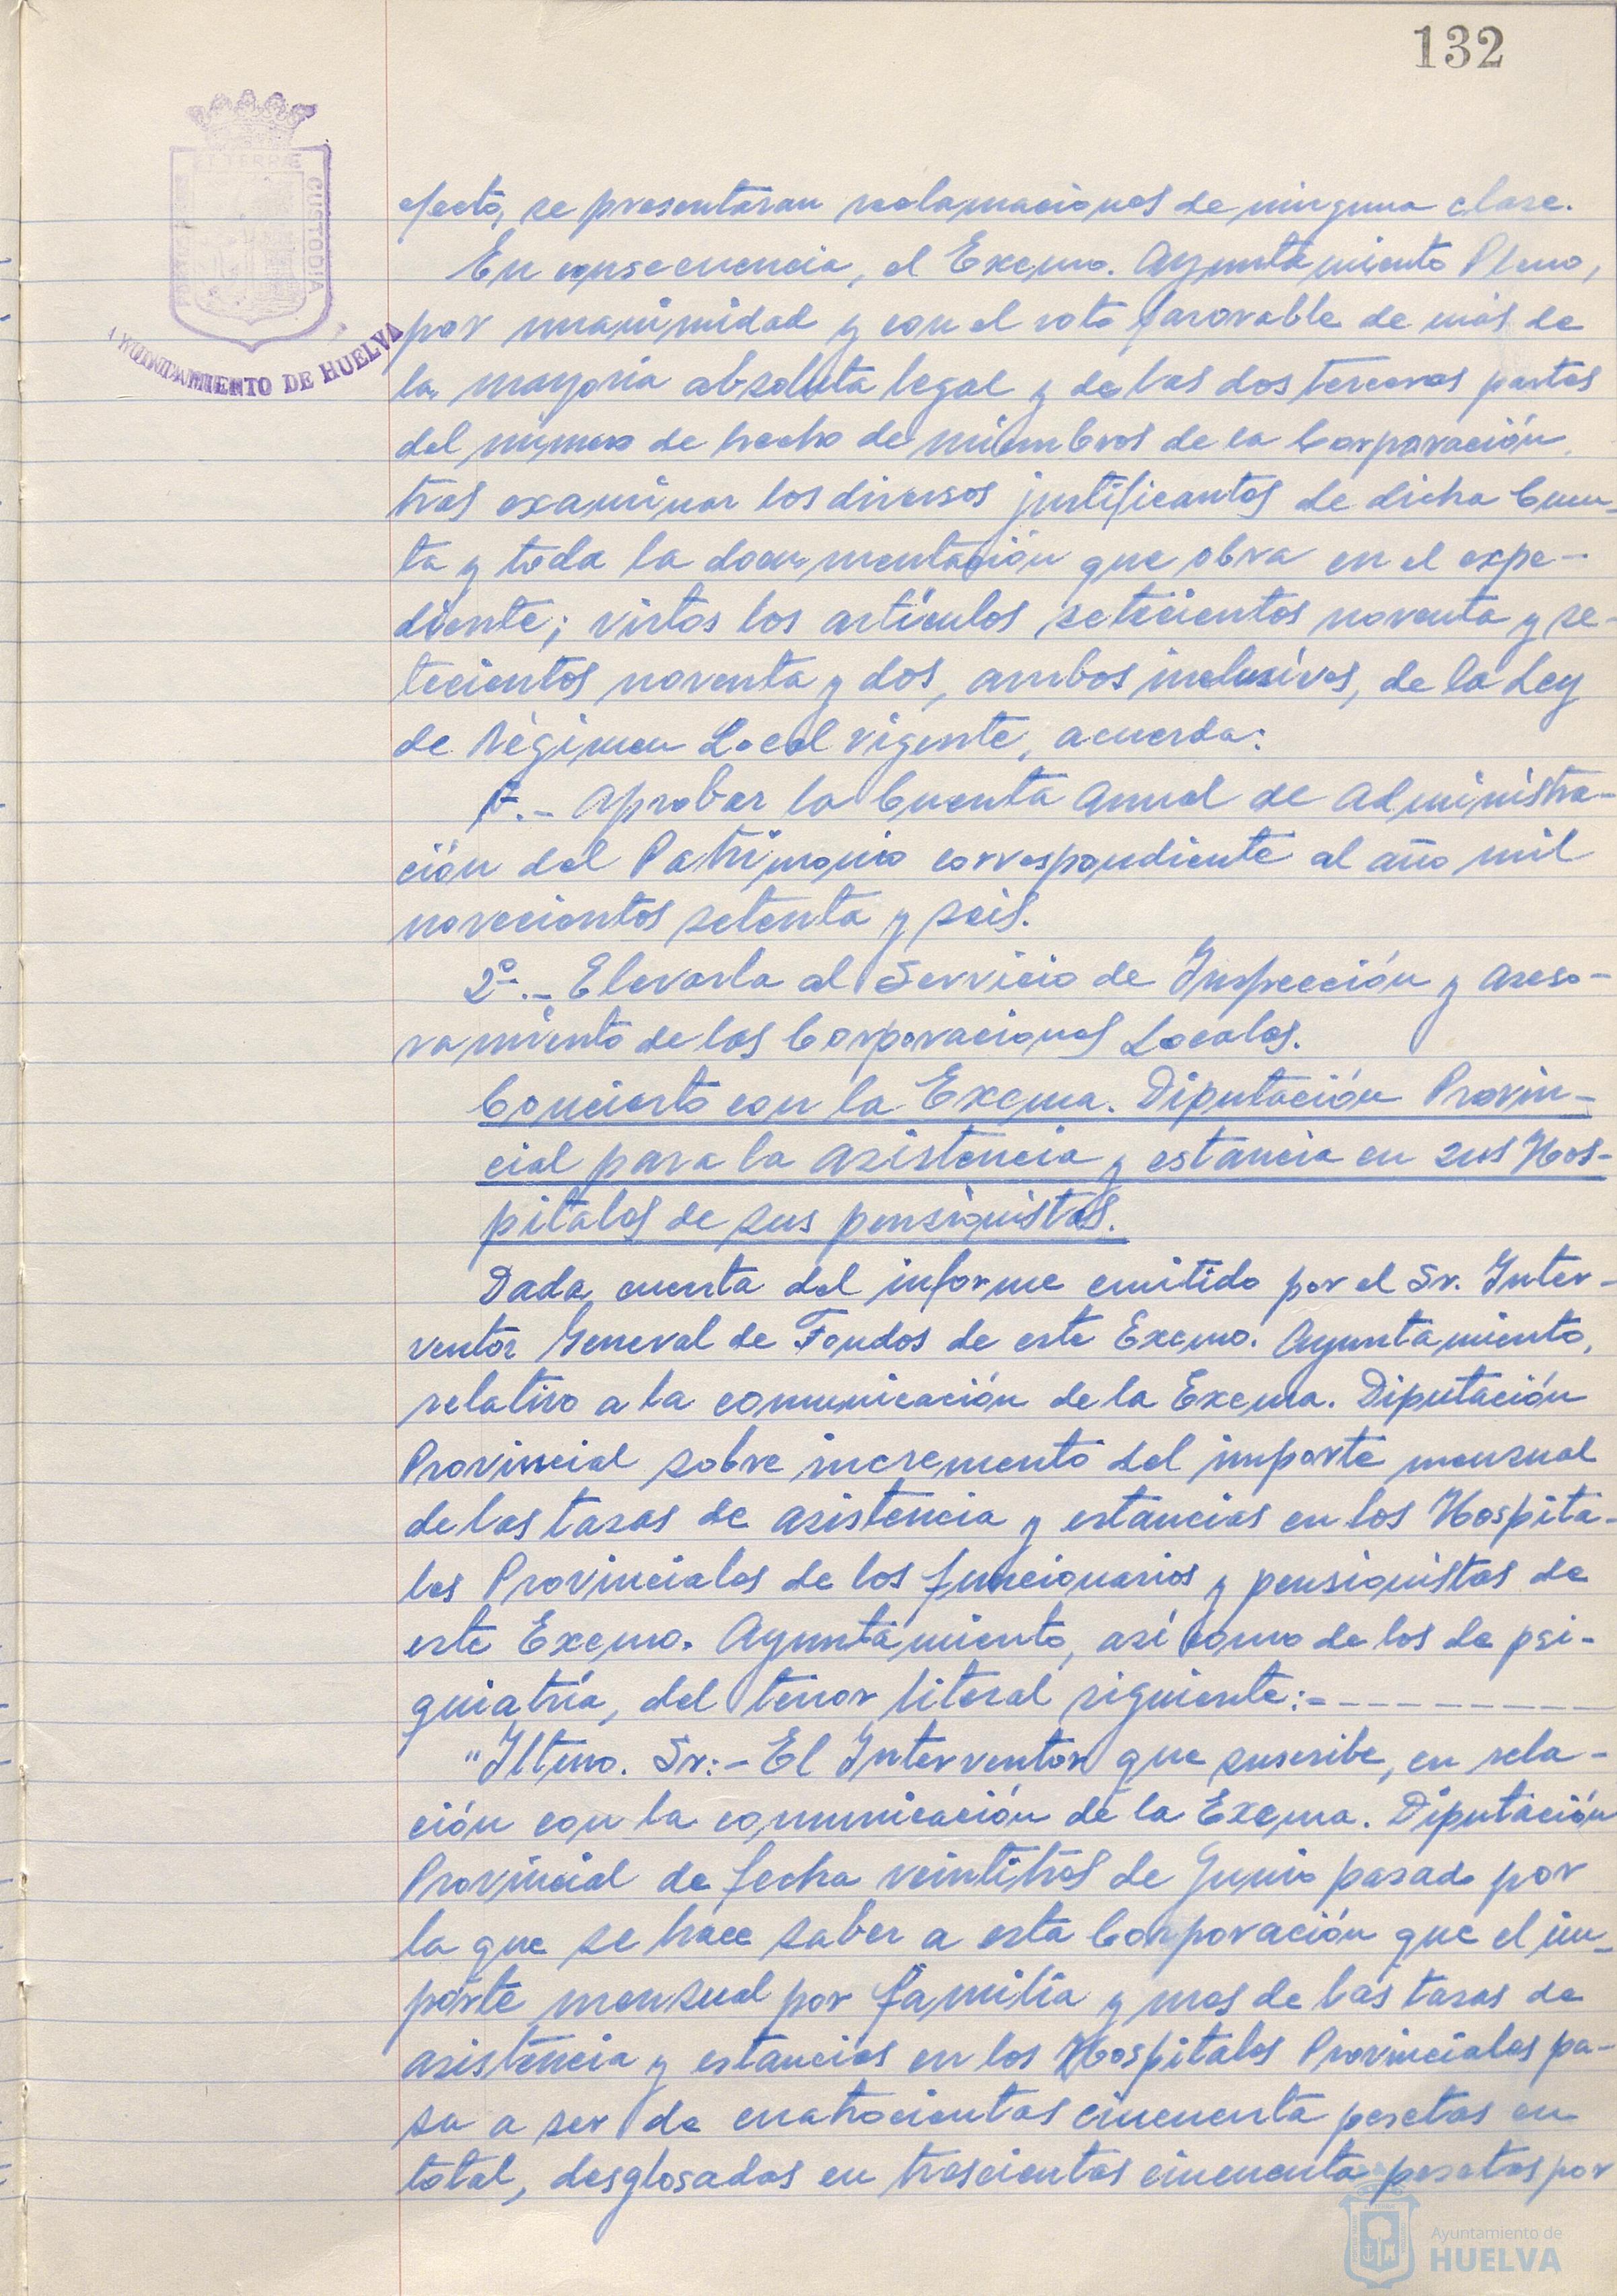 132
PORTUS MARIS ET TERRAE CUSTODIA
AYUNTAMIENTO DE HUELVA
efecto, se presentaran reclamaciones de ninguna clase.
En consecuencia, el Excmo. Ayuntamiento Pleno,
por unanimidad y con el voto favorable de más de
la mayoria absoluta legal y de las dos terceras partes
del número de hecho de miembros de la Corporación,
tras examinar los diversos justificantes de dicha Cuen-
ta y toda la documentación que obra en el expe-
diente; vistos los artículos setecientos noventa y se-
tecientos noventa y dos, ambos inclusives, de la Ley
de Régimen Local vigente, acuerda:
1º.- Aprobar la Cuenta Anual de Administra-
ción del Patrimonio correspondiente al año mil
novecientos setenta y seis.
2º.- Elevarla al Servicio de Inspección y Aseso-
ramiento de las Corporaciones Locales.
Concierto con la Excma. Diputación Provin-
cial para la asistencia y estancia en sus Hos-
pitales de sus pensionistas.
Dada cuenta del informe emitido por el Sr. Inter-
ventor General de Fondos de este Excmo. Ayuntamiento,
relativo a la comunicación de la Excma. Diputación
Provincial sobre incremento del importe mensual
de las tasas de asistencia y estancias en los Hospita-
les Provinciales de los funcionarios y pensionistas de
este Excmo. Ayuntamiento, así como de los de psi-
quiatría, del tenor literal siguiente:- - - - - - - - -
"Iltmo. Sr:- El Interventor que suscribe, en rela-
ción con la comunicación de la Excma. Diputación
Provincial de fecha veintitres de Junio pasado por
la que se hace saber a esta Corporación que el im-
porte mensual por familia y mes de las tasas de
asistencia y estancias en los Hospitales Provinciales pa-
sa a ser de cuatrocientas cincuenta pesetas en
total, desglosadas en trescientas cincuenta pesetas por
Ayuntamiento de
HUELVA